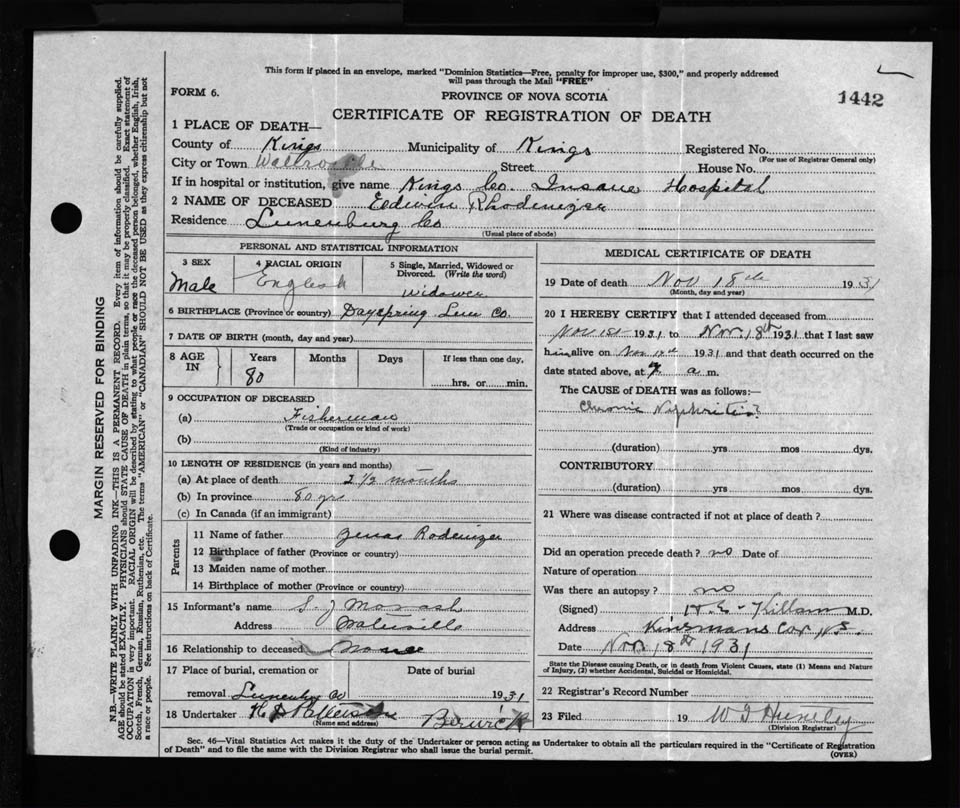 This form if placed in an envelope, marked "Dominion Statistics—Free, penalty for improper use, $300," and properly addressed
will pass through the Mail "FREE"
FORM 6.
PROVINCE OF NOVA SCOTIA
1442
CERTIFICATE OF REGISTRATION OF DEATH
1 PLACE OF DEATH—
County of Kings Municipality of Kings Registered No.
(For use of Registrar General only)
City or Town Street House No.
If in hospital or institution, give name Kings Co. Insane Hospital
2 NAME OF DECEASED Edwin Rhodenizer
Residence Lunenburg Co
(Usual place of abode)
PERSONAL AND STATISTICAL INFORMATION
3 SEX
Male
4 RACIAL ORIGIN
English
5 Single, Married, Widowed or
Divorced. (Write the word)
Widower
6 BIRTHPLACE (Province or country) Dayspring Lun Co.
7 DATE OF BIRTH (month, day and year)
8 AGE IN
Years Months Days If less than one day,
80
hrs. or min.
9 OCCUPATION OF DECEASED
(a) Fisherman
(Trade or occupation or kind of work)
(b)
(Kind of industry)
10 LENGTH OF RESIDENCE (in years and months)
(a) At place of death 2 1/2 months
(b) In province 80 yrs
(c) In Canada (if an immigrant)
Parents
11 Name of father Rodenizer
12 Birthplace of father (Province or country)
13 Maiden name of mother
14 Birthplace of mother (Province or country)
15 Informant's name S. J
Address Waterville
16 Relationship to deceased None
17 Place of burial, cremation or Date of burial
removal Lunenbg Co 1931
18 Undertaker Berwick
(Name and address)
MEDICAL CERTIFICATE OF DEATH
19 Date of death Nov 18th 1931
(Month, day and year)
20 I HEREBY CERTIFY that I attended deceased from
Nov 1st 1931 to Nov. 18th 1931 that I last saw
him alive on Nov 1931 and that death occurred on the
date stated above, at a. m.
The CAUSE of DEATH was as follows:
Chronic Nephritis
(duration) yrs mos dys.
CONTRIBUTORY
(duration) yrs mos dys.
21 Where was disease contracted if not at place of death?
Did an operation precede death? no Date of
Nature of operation
Was there an autopsy? no
(Signed) H. E. Killam M.D.
Address Kinsmans Cor N.S.
Date Nov. 18th 1931
State the Disease causing Death, or in death from Violent Causes, state (1) Means and Nature
of Injury, (2) whether Accidental, Suicidal or Homicidal.
22 Registrar's Record Number
23 Filed 19
(Division Registrar)
Sec. 46—Vital Statistics Act makes it the duty of the Undertaker or person acting as Undertaker to obtain all the particulars required in the "Certificate of Registration
of Death" and to file the same with the Division Registrar who shall issue the burial permit.
(OVER)
MARGIN RESERVED FOR BINDING
N.B.—WRITE PLAINLY WITH UNFADING INK—THIS IS A PERMANENT RECORD. Every item of information should be carefully supplied.
AGE should be stated EXACTLY. PHYSICIANS should STATE CAUSE OF DEATH in plain terms, so that it may be properly classified. Exact statement of
OCCUPATION is very important. RACIAL ORIGIN will be described by stating to what people or race the deceased person belonged, whether English, Irish,
Scotch, French, German, Russian, Ruthenian, etc. The terms "AMERICAN" or "CANADIAN" SHOULD NOT BE USED as they express citizenship but not
a race or people. See instructions on back of Certificate.